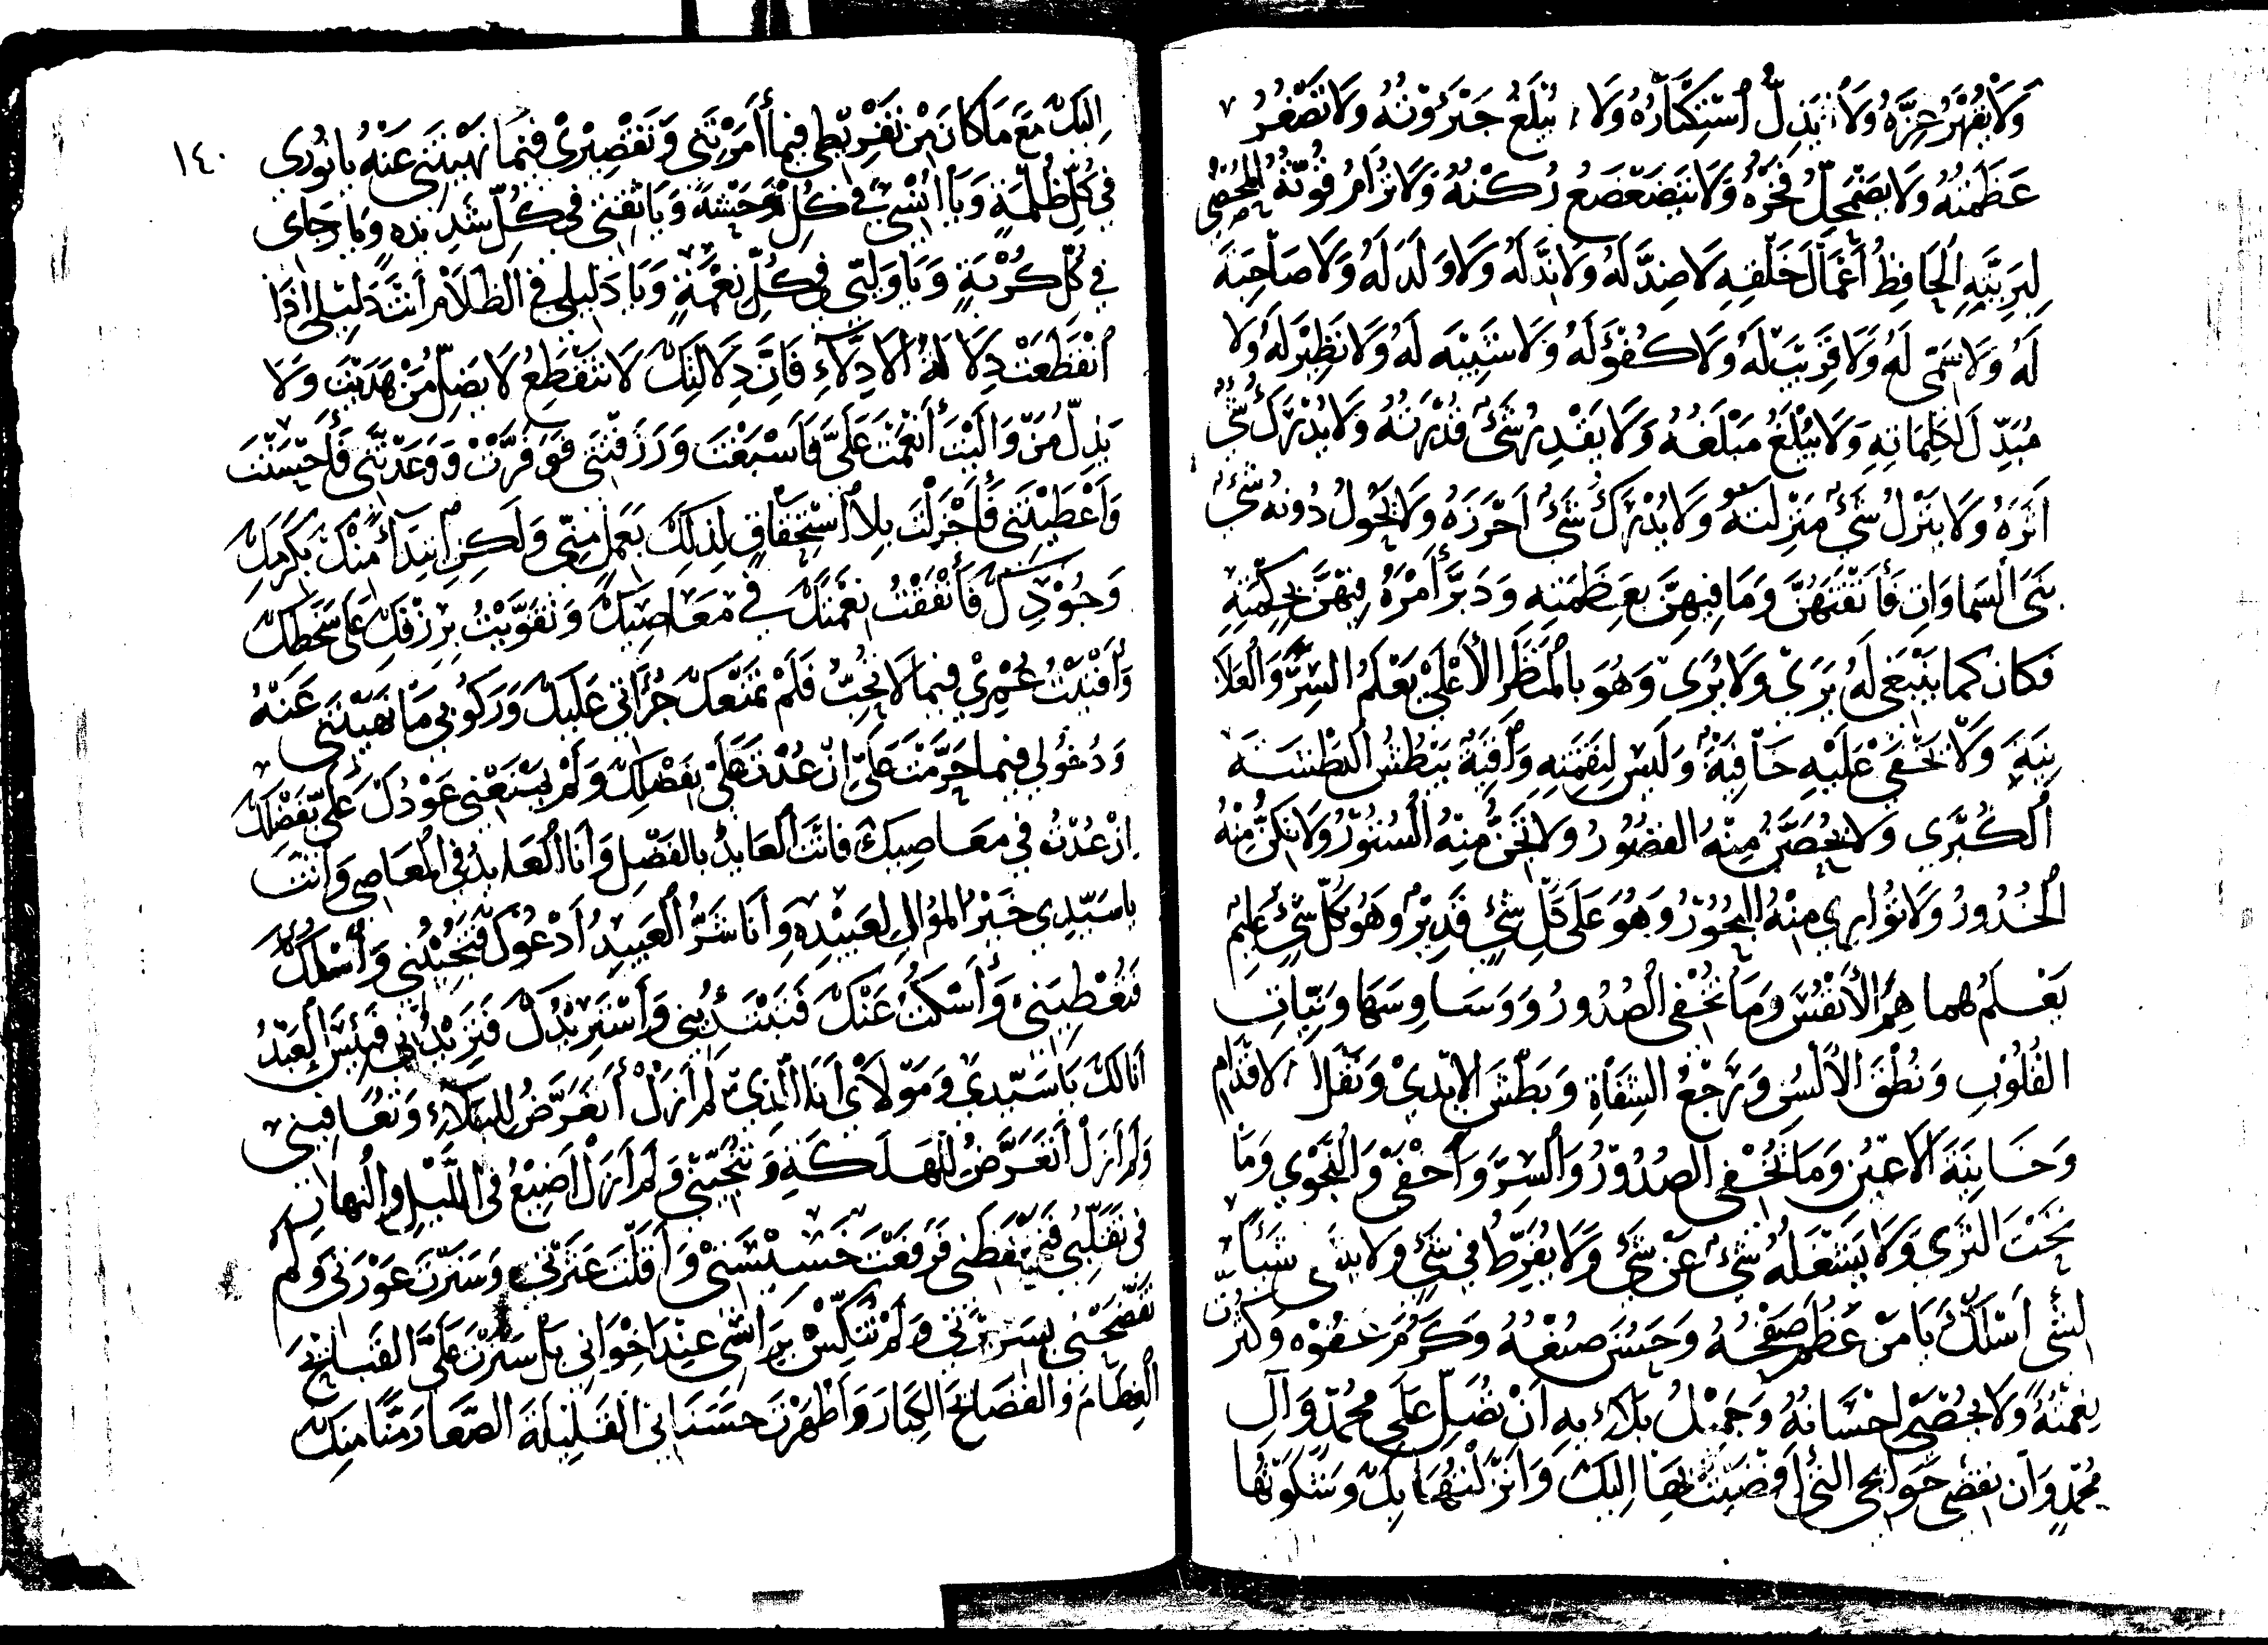 وَلَا يُقْهَرُ عِزُّهُ وَلَا يَذِلُّ اسْتِكْبَارُهُ وَلَا يُبْلَغُ جَبَرُوْتُهُ وَلَا تَصْغُرُ
عَظَمَتُهُ وَلَا يَضْمَحِلُّ فَخْرُهُ وَلَا يَتَضَعْضَعُ رُكْنُهُ وَلَا تُرَامُ قُوَّتُهُ الْمُحْصِي
لِبَرِيَّتِهِ الْحَافِظُ أَعْمَالَ خَلْقِهِ لَا ضِدَّ لَهُ وَلَا نِدَّ لَهُ وَلَا وَلَدَ لَهُ وَلَا صَاحِبَةَ
لَهُ وَلَا سَمِيَّ لَهُ وَلَا قَرِيْبَ لَهُ وَلَا كُفْوَ لَهُ وَلَا شَبِيْهَ لَهُ وَلَا نَظِيْرَ لَهُ وَلَا
مُبَدِّلَ لِكَلِمَاتِهِ وَلَا يَبْلُغُ مَبْلَغَهُ وَلَا يَقْدِرُ شَيْءٌ قُدْرَتَهُ وَلَا يُدْرِكُ شَيْءٌ
أَثَرَهُ وَلَا يَنْزِلُ شَيْءٌ مَنْزِلَتَهُ وَلَا يُدْرَكُ شَيْءٌ أَحْرَزَهُ وَلَا يَحُولُ دُونَهُ شَيْءٌ
بَنَى السَّمَاوَاتِ فَأَتْقَنَهُنَّ وَمَا فِيهِنَّ بِعَظَمَتِهِ وَدَبَّرَ أَمْرَهُ فِيهِنَّ بِحِكْمَتِهِ
فَكَانَ كَمَا يَنْبَغِي لَهُ يَرَى وَلَا يُرَى وَهُوَ بِالْمَنْظَرِ الْأَعْلَى يَعْلَمُ السِّرَّ وَالْعَلَا
نِيَةَ وَلَا تَخْفَى عَلَيْهِ خَافِيَةٌ وَلَيْسَ لِنِقْمَتِهِ وَاقِيَةٌ يَبْطُشُ الْبَطْشَةَ
الْكُبْرَى وَلَا تُحْصِنُ مِنْهُ الْقُصُورُ وَلَا تُجِنُّ مِنْهُ السُّتُورُ وَلَا تُكِنُّ مِنْهُ
الْخُدُورُ وَلَا تُوَارِي مِنْهُ الْبُحُوْرُ وَهُوَ عَلَى كُلِّ شَيْءٍ قَدِيْرٌ وَهُوَ بِكُلِّ شَيْءٍ عَلِيمٌ
يَعْلَمُ هَمَاهِمَ الْأَنْفُسِ وَمَا تُخْفِي الصُّدُورُ وَوَسَاوِسَهَا وَنِيَّاتِ
الْقُلُوبِ وَنُطْقَ الْأَلْسُنِ وَرَجْعَ الشِّفَاةِ وَبَطْشَ الْأَيْدِيْ وَنَقْلَ الْأَقْدَامِ
وَخَايِنَةَ الْأَعْيُنِ وَمَا تُخْفِي الصُّدُوْرُ وَالسِّرَّ وَأَخْفَى وَالنَّجْوَى وَمَا
تَحْتَ الثَّرَى وَلَا يَشْغَلُهُ شَيْءٌ عَنْ شَيْءٍ وَلَا يُفَرِّطُ فِي شَيْءٍ وَلَا يَنْسَى شَيْئًا
لِشَيْءٍ أَسْئَلُكَ يَا مَنْ عَظُمَ صَفْحُهُ وَحَسُنَ صُنْعُهُ وَكَرُمَ عَفْوُهُ وَكَثُرَتْ
نِعْمَتُهُ وَلَا يُحْصَى إِحْسَانُهُ وَجَمِيْلُ بَلَائِهِ أَنْ تُصَلِّيَ عَلَى مُحَمَّدٍ وَآلِ
مُحَمَّدٍ وَأَنْ تَقْضِيَ حَوَائِجِيَ الَّتِي أَفْضَيْتُ بِهَا إِلَيْكَ وَأَنْزَلْتُهَا بِكَ وَشَكَوْتُهَا
١٤٠
إِلَيْكَ مَعَ مَا كَانَ مِنْ تَفْرِيْطِي فِيمَا أَمَرْتَنِي وَتَقْصِيْرِيْ فِيْمَا نَهَيْتَنِي عَنْهُ يَا نُورِي
فِي كُلِّ ظُلْمَةٍ وَيَا أُنْسِي فِي كُلِّ وَحْشَةٍ وَيَا ثِقَتِي فِي كُلِّ شَدِيْدَةٍ وَيَا رَجَايَ
فِي كُلِّ كُرْبَةٍ وَيَا وَلِيِّي فِي كُلِّ نِعْمَةٍ وَيَا دَلِيْلِي فِي الظَّلَامِ أَنْتَ دَلِيْلِي إِذَا
انْقَطَعَتْ دِلَالَةُ الْأَدِلَّاءِ فَإِنَّ دِلَالَتَكَ لَا تَنْقَطِعُ لَا يَضِلُّ مَنْ هَدَيْتَ وَلَا
يَذِلُّ مَنْ وَالَيْتَ أَنْعَمْتَ عَلَيَّ فَأَسْبَغْتَ وَرَزَقْتَنِي فَوَفَّرْتَ وَوَعَدْتَنِي فَأَحْسَنْتَ
وَأَعْطَيْتَنِي فَأَجْزَلْتَ بِلَا اسْتِحْقَاقٍ لِذٰلِكَ بِعَمَلٍ مِنِّي وَلَكِنِ ابْتِدَاءً مِنْكَ بِكَرَمِكَ
وَجُوْدِكَ فَأَنْفَقْتُ نِعْمَتَكَ فِي مَعَاصِيْكَ وَتَقَوَّيْتُ بِرِزْقِكَ عَلَى سَخَطِكَ
وَأَفْنَيْتُ عُمْرِيْ فِيمَا لَا تُحِبُّ فَلَمْ تَمْنَعْكَ جُرْأَتِي عَلَيْكَ وَرُكُوبِي مَا نَهَيْتَنِي عَنْهُ
وَدُخُولِي فِيمَا حَرَّمْتَ عَلَيَّ إِنْ عُدْتَ عَلَيَّ بِفَضْلِكَ وَلَمْ يَمْنَعْنِي عَوْدُكَ عَلَيَّ بِفَضْلِكَ
إِنْ عُدْتُ فِي مَعَاصِيكَ فَأَنْتَ الْعَايِدُ بِالْفَضْلِ وَأَنَا الْعَايِدُ فِي الْمَعَاصِي وَأَنْتَ
يَا سَيِّدِي خَيْرُ الْمَوَالِي لِعَبِيْدِهِ وَأَنَا شَرُّ الْعَبِيدِ أَدْعُوكَ فَتُجِيْبُنِي وَأَسْئَلُكَ
فَتُعْطِيَنِي وَأَسْكُتُ عَنْكَ فَتَبْتَدِئُنِي وَأَسْتَزِيْدُكَ فَتَزِيْدُنِي فَبِئْسَ الْعَبْدُ
أَنَا لَكَ يَا سَيِّدِيْ وَمَوْلَايَ أَنَا الَّذِيْ لَمْ أَزَلْ أَتَعَرَّضُ لِلْبَلَاءِ وَتُعَافِيْنِي
وَلَمْ أَزَلْ أَتَعَرَّضُ لِلْهَلَكَةِ وَتُنْجِيْنِي وَلَمْ أَزَلْ أَضِيْعُ فِي اللَّيْلِ وَالنَّهَارِ
فِي تَقَلُّبِي فَتَحْفَظُنِي فَرَفَعْتَ خَسِيْسَتِيْ وَأَقَلْتَ عَثْرَتِي وَسَتَرْتَ عَوْرَتِي وَلَمْ
تَفْضَحْنِي بِسَرِيْرَتِي وَلَمْ تُنَكِّسْ بِرَأْسِي عِنْدَ إِخْوَانِي بَلْ سَتَرْتَ عَلَيَّ الْقَبَايِحَ
الْعِظَامَ وَالْفَضَايِحَ الْكِبَارَ وَأَظْهَرْتَ حَسَنَاتِيَ الْقَلِيلَةَ الصِّغَارَ مَنًّا مِنْكَ